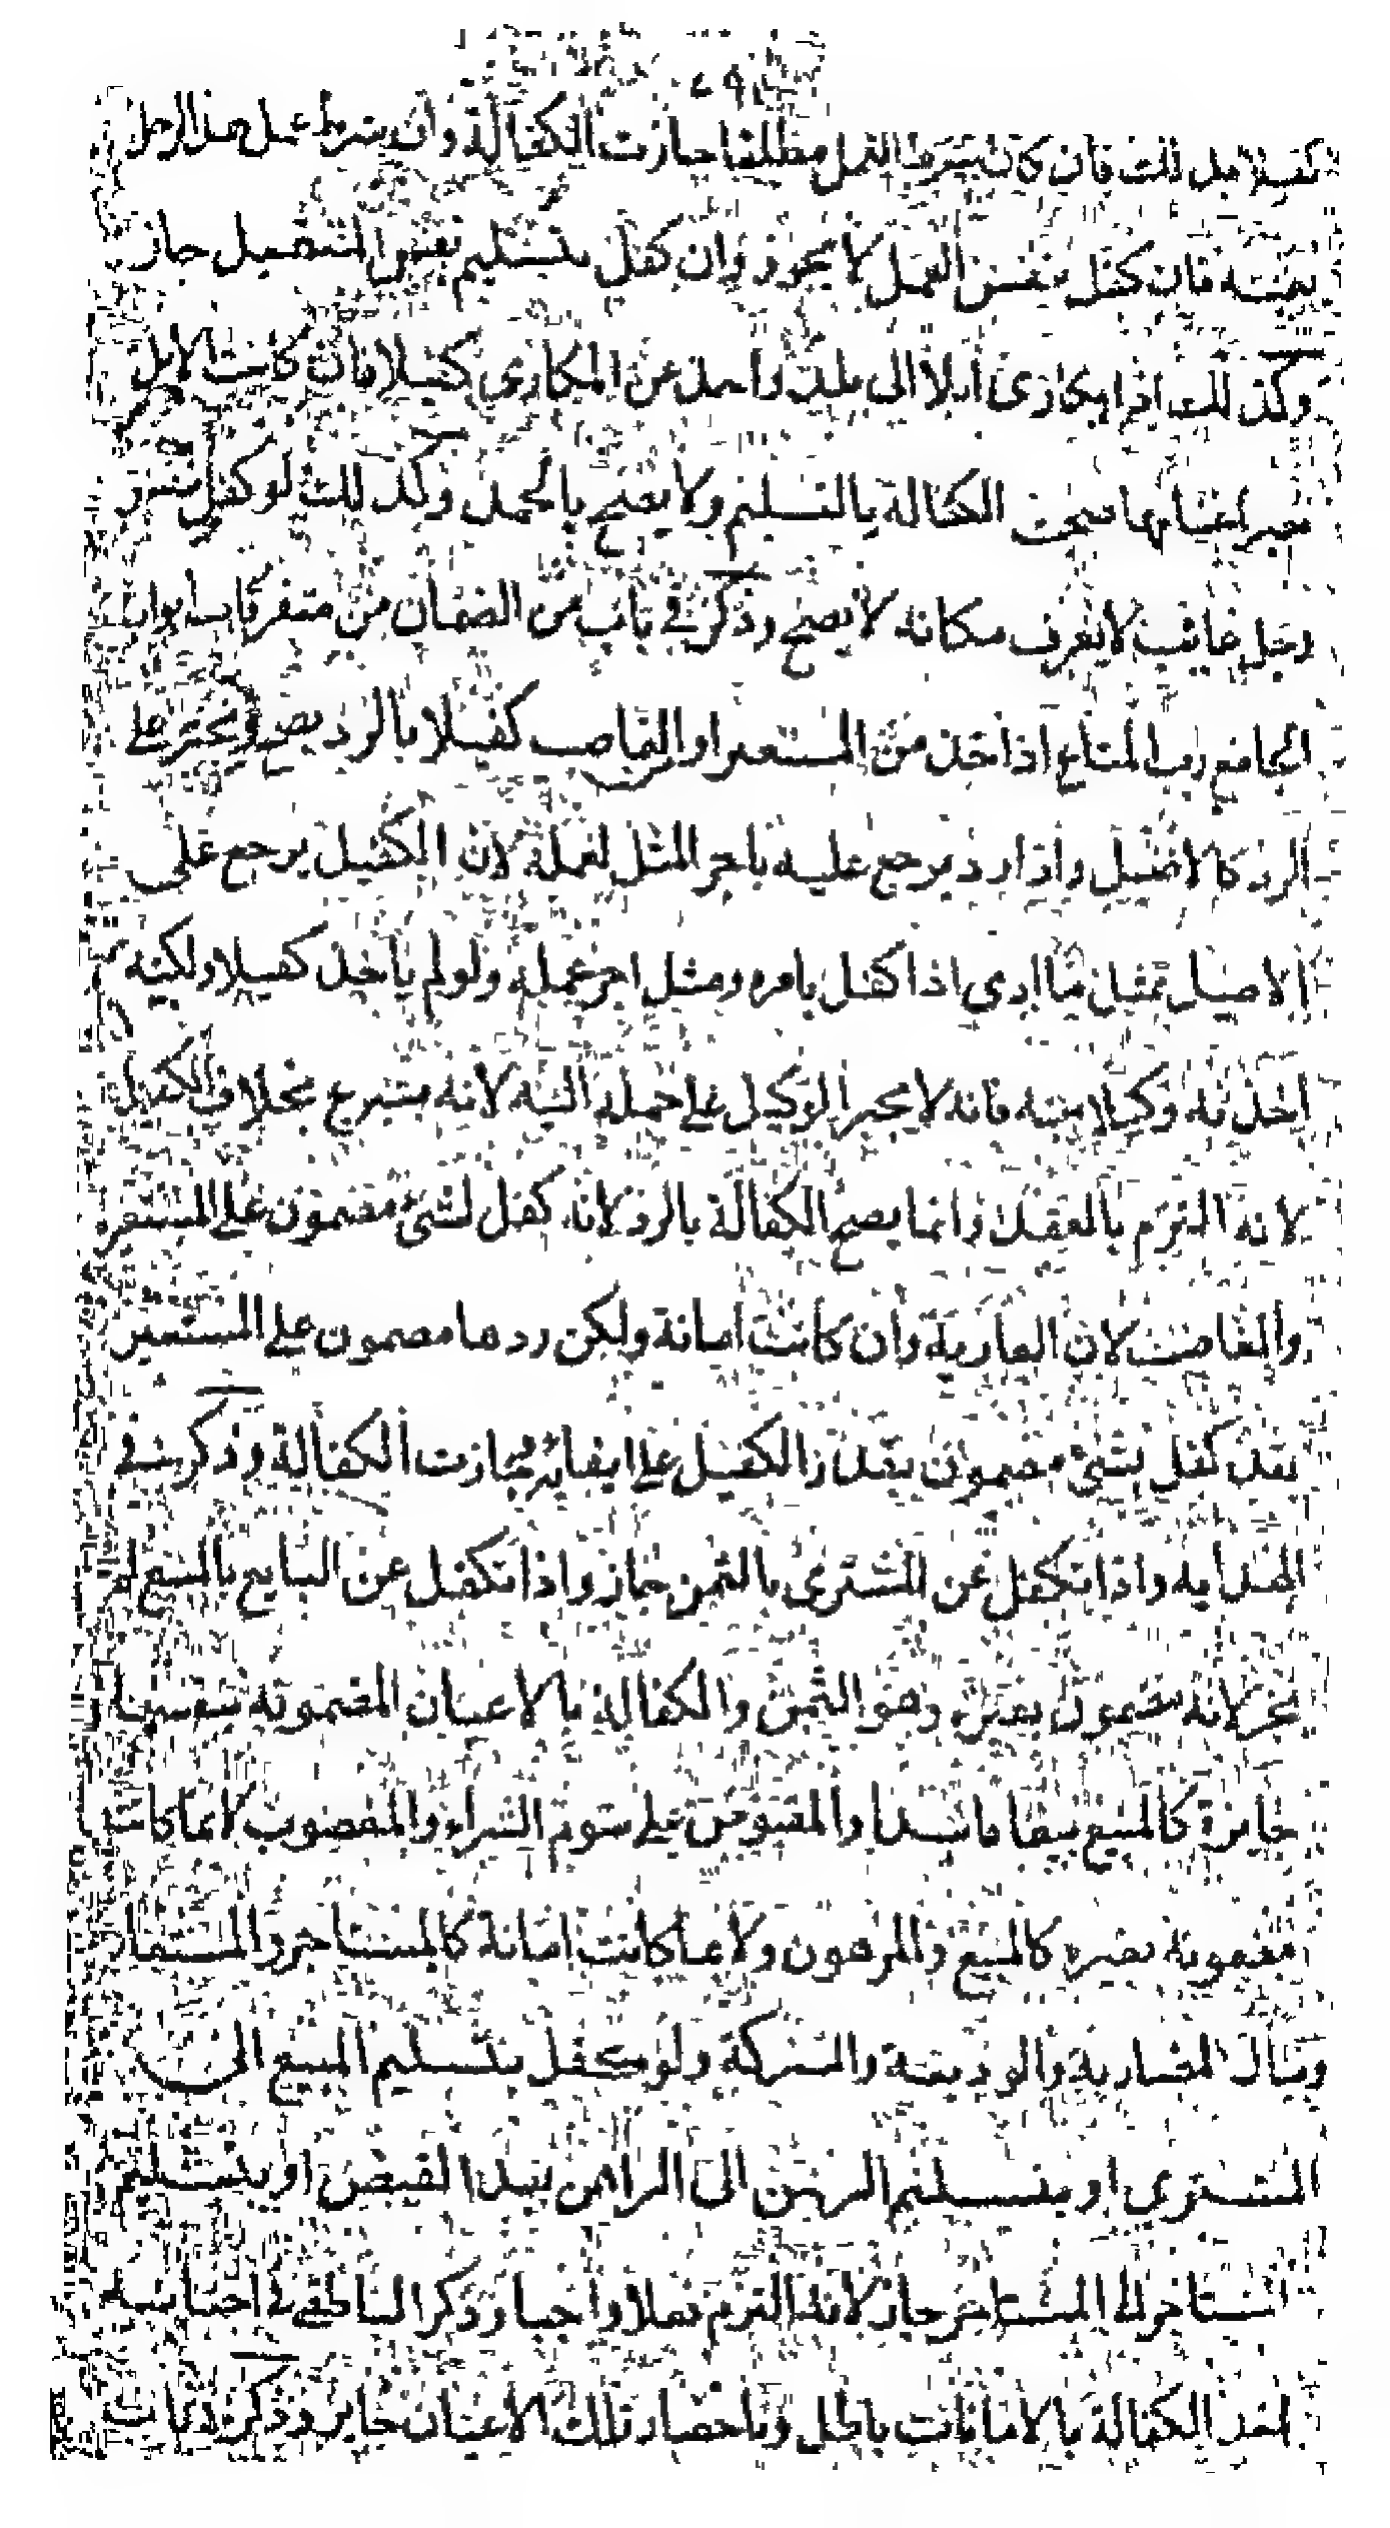 كفيلا بذلك فان كان يشترط العمل مطلقا جازت الكفالة وان شرط عمل هذا الرجل
بعينه فان كفل بنفس العمل لا يجوز وان كفل بتسليم نفس المتقبل جاز
وكذلك اذا تكارى ابلا الى بلد واخذ من المكاري كفيلا فان كانت الابل
بغير اعيانها صحت الكفالة بالتسليم ولا يصح بالحمل وكذلك لو كفل بنفس
رجل غائب لا يعرف مكانه لا يصح وذكر في باب من الضمان من متفرقات ابواب
الجامع رب المتاع اذا اخذ من المستعير او الغاصب كفيلا بالرد يصح ويجبر على
الرد كالاصيل واذا رد يرجع عليه باجر المثل لعمله لان الكفيل يرجع على
الاصيل بمثل ما ادى اذا كفل بامره ومثل اجر عمله ولو لم يأخذ كفيلا ولكنه
اخذ به وكيلا منه فانه لا يجبر الوكيل على حمله اليه لانه متبرع بخلاف الكفيل
لانه التزم بالعقد وانما يصح الكفالة بالرد لانه كفل لشئ مضمون على المستعير
والغاصب لان العارية وان كانت امانة ولكن ردها مضمون على المستعير
فقد كفل بشئ مضمون يقدر الكفيل على ايفائه فجازت الكفالة وذكر في
الهداية واذا تكفل عن المشتري بالثمن جاز واذا تكفل عن البايع بالمبيع لم
يجز لانه مضمون بغيره وهو الثمن والكفالة بالاعيان المضمونة بنفسها
جايزة كالمبيع بيعا فاسدا والمقبوض على سوم الشراء والمغصوب لا بما كانت
مضمونة بغيره كالمبيع والمرهون ولا بما كانت امانة كالمستاجر والمستعار
ومال المضاربة والوديعة والشركة ولو كفل بتسليم المبيع الى
المشتري او بتسليم الرهن الى الراهن بعد القبض او بتسليم
المستاجر الى المستاجر جاز لانه التزم فعلا واجبا وذكر الناطفي في اجناسه
اخذ الكفالة بالامانات باطل وباحضار تلك الاعيان جايز وذكر